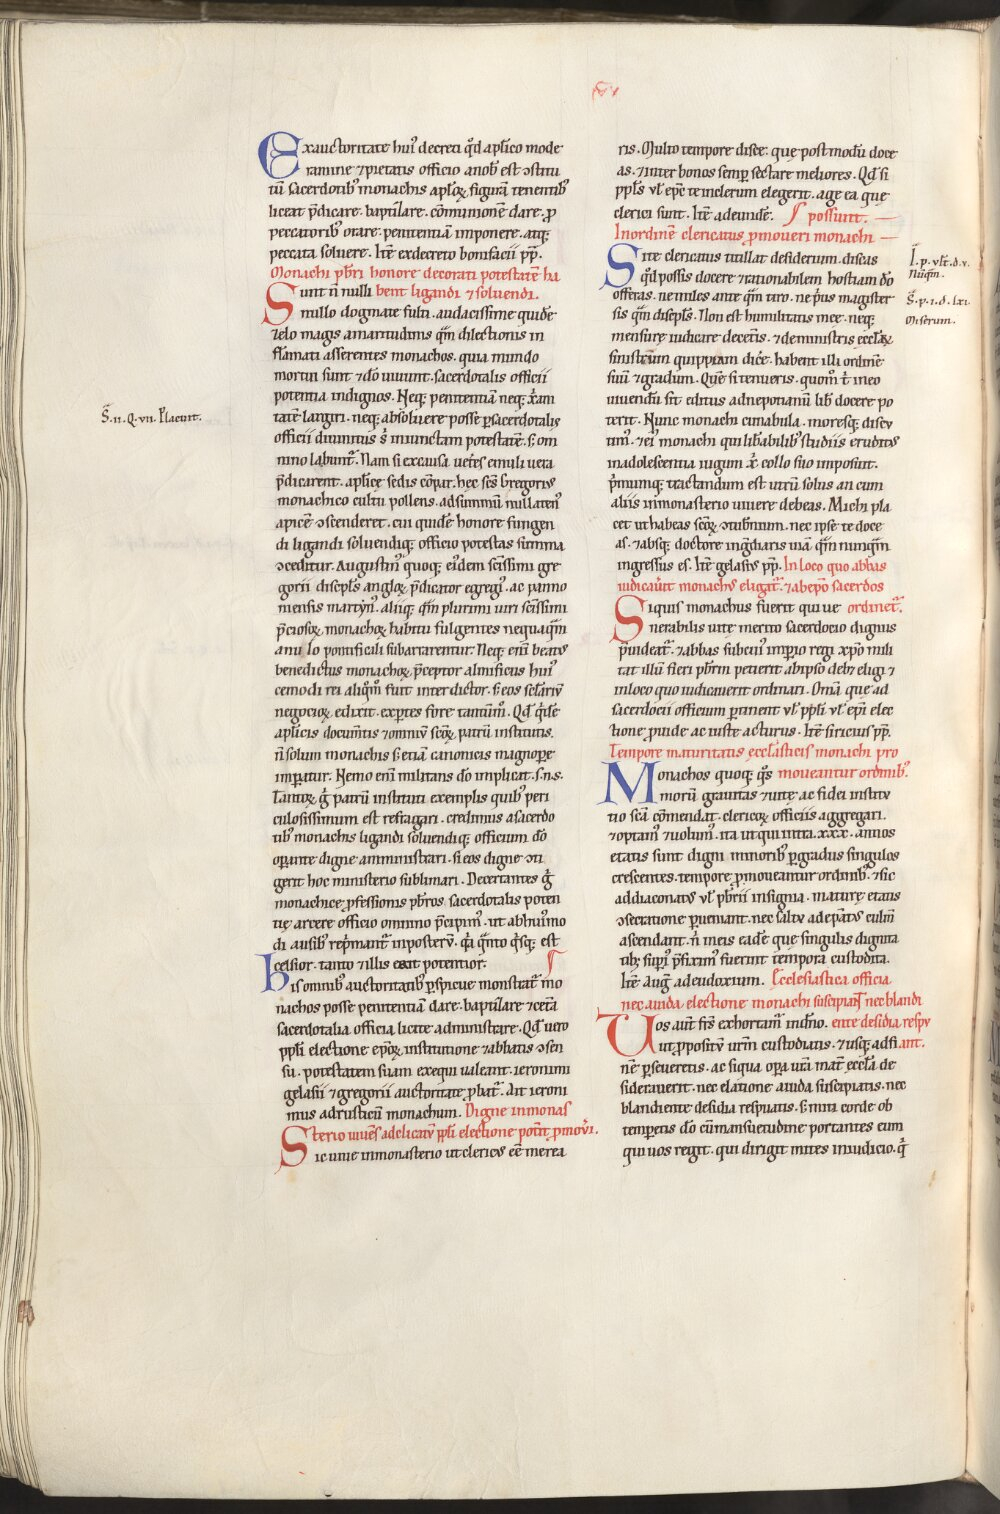 Ex auctoritate hui᾽ decreti q̄d ap̄lico mode
ramine ⁊ pietatis officio a nob᾽ est ↄstitu
tū sacerdotib᾽ monachis ap̄loꝝ figurā tenentib᾽
liceat p̄dicare. baptizare. cōmunionē dare. ꝓ
peccatorib᾽ orare. penitentiā imponere. atq;
peccata soluere. Itē ex decreto bonifacii pp̄.
Monachi pb̄ri honore decorati potestatē ha
Sunt n̄ nulli bent ligandi ⁊ soluendi.
nullo dogmate fulti. audacissime quidē
zelo magis amaritudinis q̄m dilectionis in
flāmati asserentes monachos. quia mundo
mortui sunt ⁊ dō uiuunt. sacerdotalis officii
potentia indignos. Neq; penitentiā neq; x̄ani
tatē largiri. neq; absoluere posse ꝑ sacerdotalis
officii diuinitus s̄ iniunctam potestatē. s; om
nino labunt᷑. Nam si ex causa uet̄es emuli uera
p̄dicarent. aplicę sedis cōpar. hec sc̄s Gregori᾽
monachico cultu pollens. ad summū nullaten᾽
apicē ↄscenderet. cui quidē honore fungen
di ligandi soluendiq; officio potestas summa
ↄceditur. Augustin᾽ quoq; eidem sc̄issimi gre
gorii discipl̄s angloꝝ p̄dicator egregi᾽. ac panno
niensis martyn᾽. aliiq; q̄m plurimi uiri sc̄issimi
p̄ciosoꝝ monachoꝝ habitu fulgentes nequaq̄m
anulo pontificali subarrarentur. Neq; enī beat᾽
benedictus monachoꝝ p̄ceptor almificus hui᾽
cemodi rei aliq̄m̄ fuit interdictor. s; eos sęlariū
negocioꝝ edixit. expertes fore tantūm᾽. Qd̄ q̄dē
aplicis documtis ⁊ omniū sc̄oꝝ patrū institutis.
n̄ solum monachis s; etiā canonicis magnopere
imꝑatur. Nemo enī militans dō implicat. s.n.s.
Tantoꝝ ḡ patrū instituti exemplis quib᾽ peri
culosissimum est refragari. credimus a sacerdo
tib᾽ monachis ligandi soluendiq; officium dō
oꝑante digne amministrari. si eos digne ↄti
gerit hoc ministerio sublimari. Decertantes ḡ
monachicę ꝓfessionis pb̄ros sacerdotalis poten
tię arcere officio omnino p̄cipim᾽. ut ab hui᾽mo
di ausib᾽ rep̄mant᷑ in posterū. q̄i q̄nto q̄sq; est
celsior. tanto ⁊ illis erit potentior.
His omnib᾽ auctoritatib᾽ ꝑspicue monstrat᷑ mo
nachos posse penitentiā dare. baptizare ⁊ cetā
sacerdotalia officia licite administrare. Qd̄ uero
ppl̄i electione ep̄oꝝ institutione ⁊ abbatis ↄsen
su. potestatem suam exequi ualeant. ieronimi
gelasii ⁊ gregorii auctoritate ꝓbat᷑. Ait ieroni
mus ad rusticū monachum. Digne in monas
Sterio uiuēs ad elicatū ppl̄i electione potit ꝓmou᾽i.
ic uiue in monasterio ut cleric᾽ eē merea
ris. Multo tempore disce. que postmodū doce
as. ⁊ inter bonos semp̱ sectare meliores. Qd̄ si
ppl̄s ul᾽ ep̄c te in clerum elegerit. age ea que
clerici sunt. Itē ad eundē. possunt.
In ordinē clericatus ꝓmoueri monachi
Si te clericatus titillat desiderium. discas
q̄d possis docere ⁊ rationabilem hostiam dō
offeras. ne miles ante q̄m tiro. ne p̄us magister
sis q̄m discipl̄s. Non est humilitatis mee. neq;
mensurę iudicare de cet̄is. ⁊ de ministris ecclaꝝ
sinistrum quippiam dic̄e. habent illi ordinē
suū ⁊ gradum. Quē si tenueris. quom᾽ t̄ in eo
uiuendū sit editus ad nepotianū lib᾽ docere po
terit. Nunc monachi cunabula. moresq; discu
tim᾽. ⁊ ei᾽ monachi qui lib̄alib᾽ studiis eruditus
in adolescentia iugum x᾽ collo suo imposuit.
p̄mumq; tractandum est utrū solus an cum
aliis in monasterio uiuere debeas. Michi pla
cet ut habeas sc̄oꝝ ↄtub̄nium. nec ipse te doce
as. ⁊ absq; doctore ingrediaris uiā q̄m nunq̄m
ingressus es. Itē gelasi᾽ pp̄. In loco quo abbas
iudicau̅it monach᾽ eligat᷑. ⁊ ab ep̄o sacerdos
Siquis monachus fuerit qui ue ordinet᷑.
nerabilis uitę merito sacerdocio dignus
p̄uideat᷑. ⁊ abbas sub cui᾽ imp̱io regi x̄p̄o mili
tat illū fieri pb̄rm petierit ab ip̄so deb; eligi ⁊
in loco quo iudicauerit ordinari. Om̄ia que ad
sacerdocii officium ꝑtinent ul᾽ ppl̄i ul᾽ ep̄i elec
tione ꝓuide ac iuste acturus. Itē siricius pp̄.
Tempore maturitatis ęcclasticis monachi pro
Monachos quoq; q̄s moueantur ordinib᾽.
morū grauitas ⁊ uitę ac fidei institu
tio sc̄a cōmendat. clericoꝝ officiis aggregari.
⁊ optam᾽ ⁊ uolum᾽. ita ut qui intra .xxx. annos
etatis sunt digni minorib᾽ ꝑ gradus singulos
crescentes. tempore ꝓmoueantur ordinib᾽. ⁊ sic
ad diaconat᾽ ul᾽ pb̄rii insignia. maturę etatis
ↄsecratione ꝑueniant. nec saltu ad ep̄at᾽ culm̄
ascendant. n̄ in eis eadē que singulis dignita
tib; sup̱i᾽ p̄fixim᾽ fuerint tempora custodita.
Itē Aug᾽ ad eudoxium. Ecclesiastica officia
nec auida electione monachi suscipiant nec blandi
Uos aut̄ fr̄s exhortam᾽ in dn̄o. ente desidia respu
ut ꝓpositū urm̄ custodiatis. ⁊ usq; ad fi ant.
nē ꝑseueretis. ac siqua oꝑa urā mat̄ ęccl̄a de
siderauerit. nec elatione auida suscipiatis. nec
blandiente desidia respuatis. s; miti corde ob
temꝑetis dō cū mansuetudine portantes eum
qui uos regit. qui dirigit mites in iudicio. q̄
S̄. ii. Q. vii. Placuit.
I. p. ult. d. v.
Nuq̄m.
S̄. p. i. d. lxi.
Miserum.